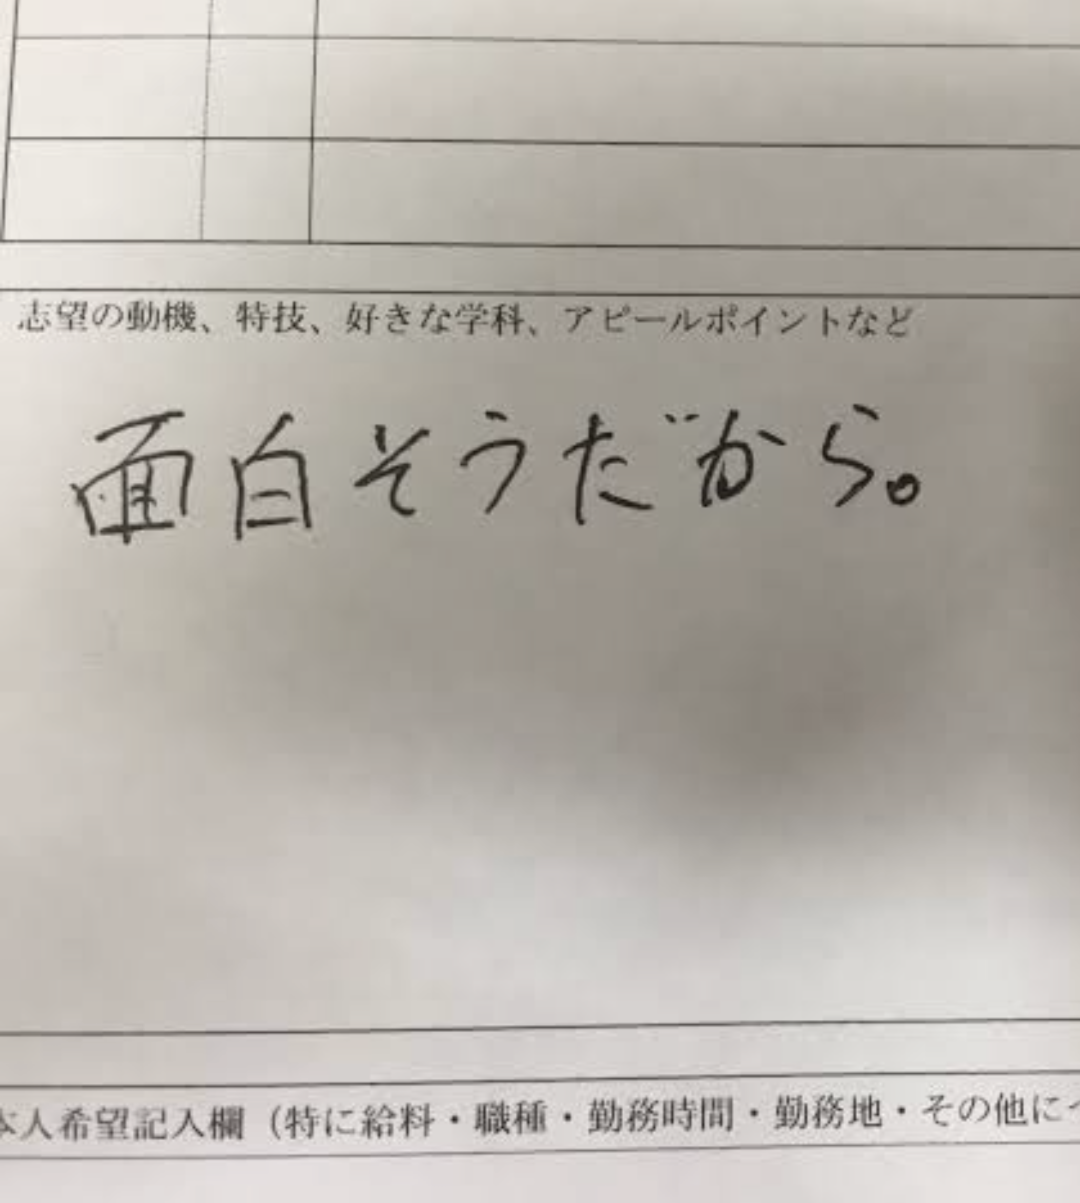 志望の動機、特技、好きな学科、アピールポイントなど
面白そうだから。
本人希望記入欄（特に給料・職種・勤務時間・勤務地・その他に